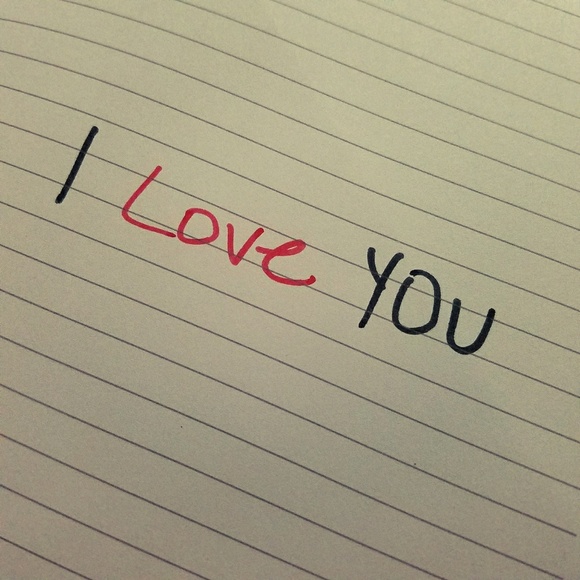 I Love YOU